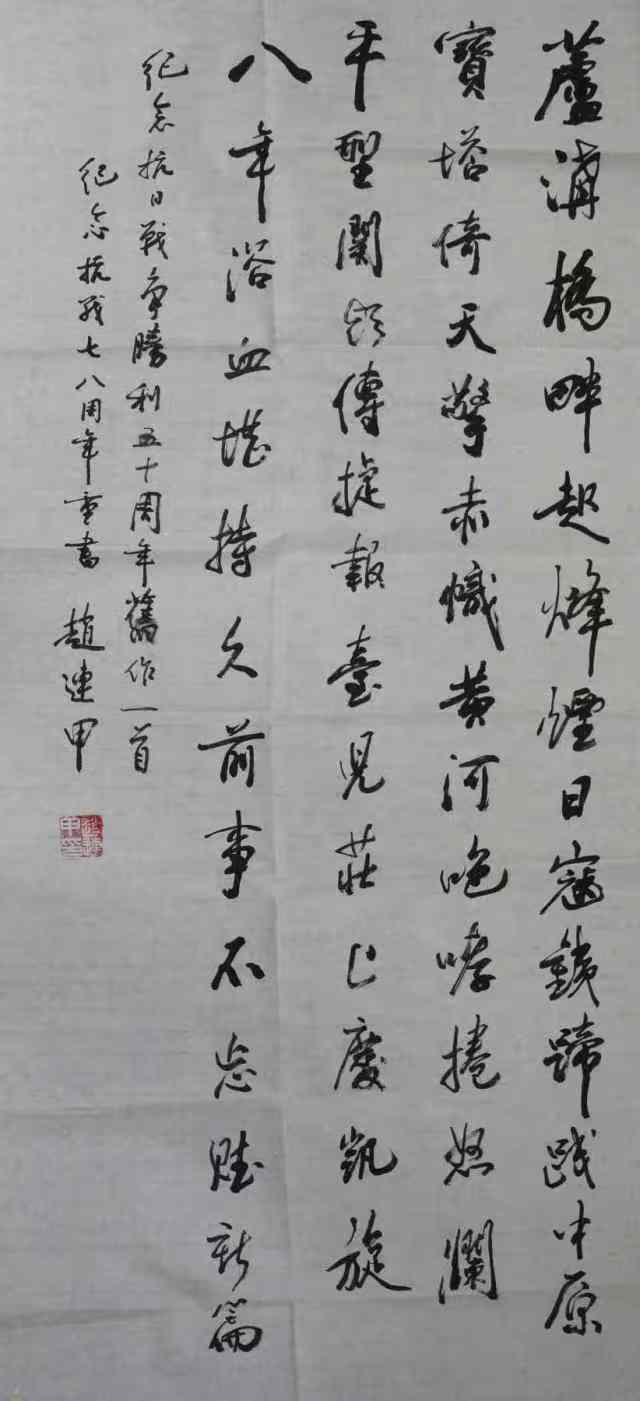 蘆溝橋畔起烽煙日寇鐵蹄踐中原
寶塔倚天擎赤幟黃河咆哮捲怒瀾
平型關頭傳捷報臺兒莊上慶凱旋
八年浴血堪持久前事不忘賦新篇
紀念抗日戰爭勝利五十周年舊作一首
紀念抗战七八周年重書 趙連甲